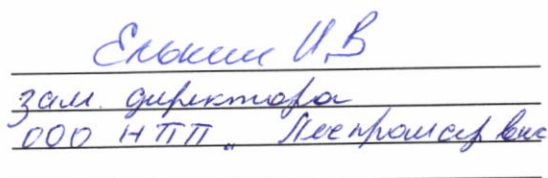 Елькин И.В
зам. директора
ООО НПП „ Леспромсервис